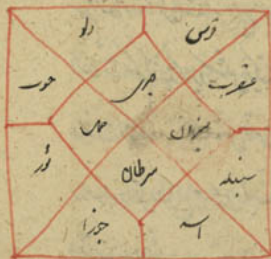 دلو
قوس
حوت
جدی
عقرب
حمل
میزان
ثور
سرطان
سنبله
جوزا
اسد